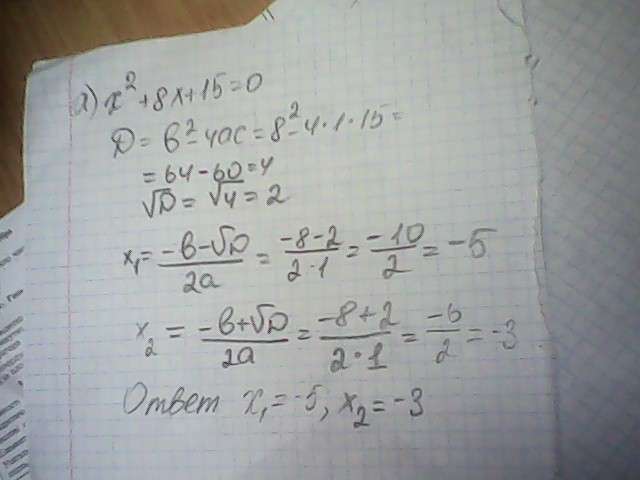 а) x² + 8x + 15 = 0
D = b² - 4ac = 8² - 4·1·15 =
= 64 - 60 = 4
√D = √4 = 2
x₁ = (-b-√D)/2a = (-8-2)/(2·1) = -10/2 = -5
x₂ = (-b+√D)/2a = (-8+2)/(2·1) = -6/2 = -3
Ответ x₁ = -5, x₂ = -3